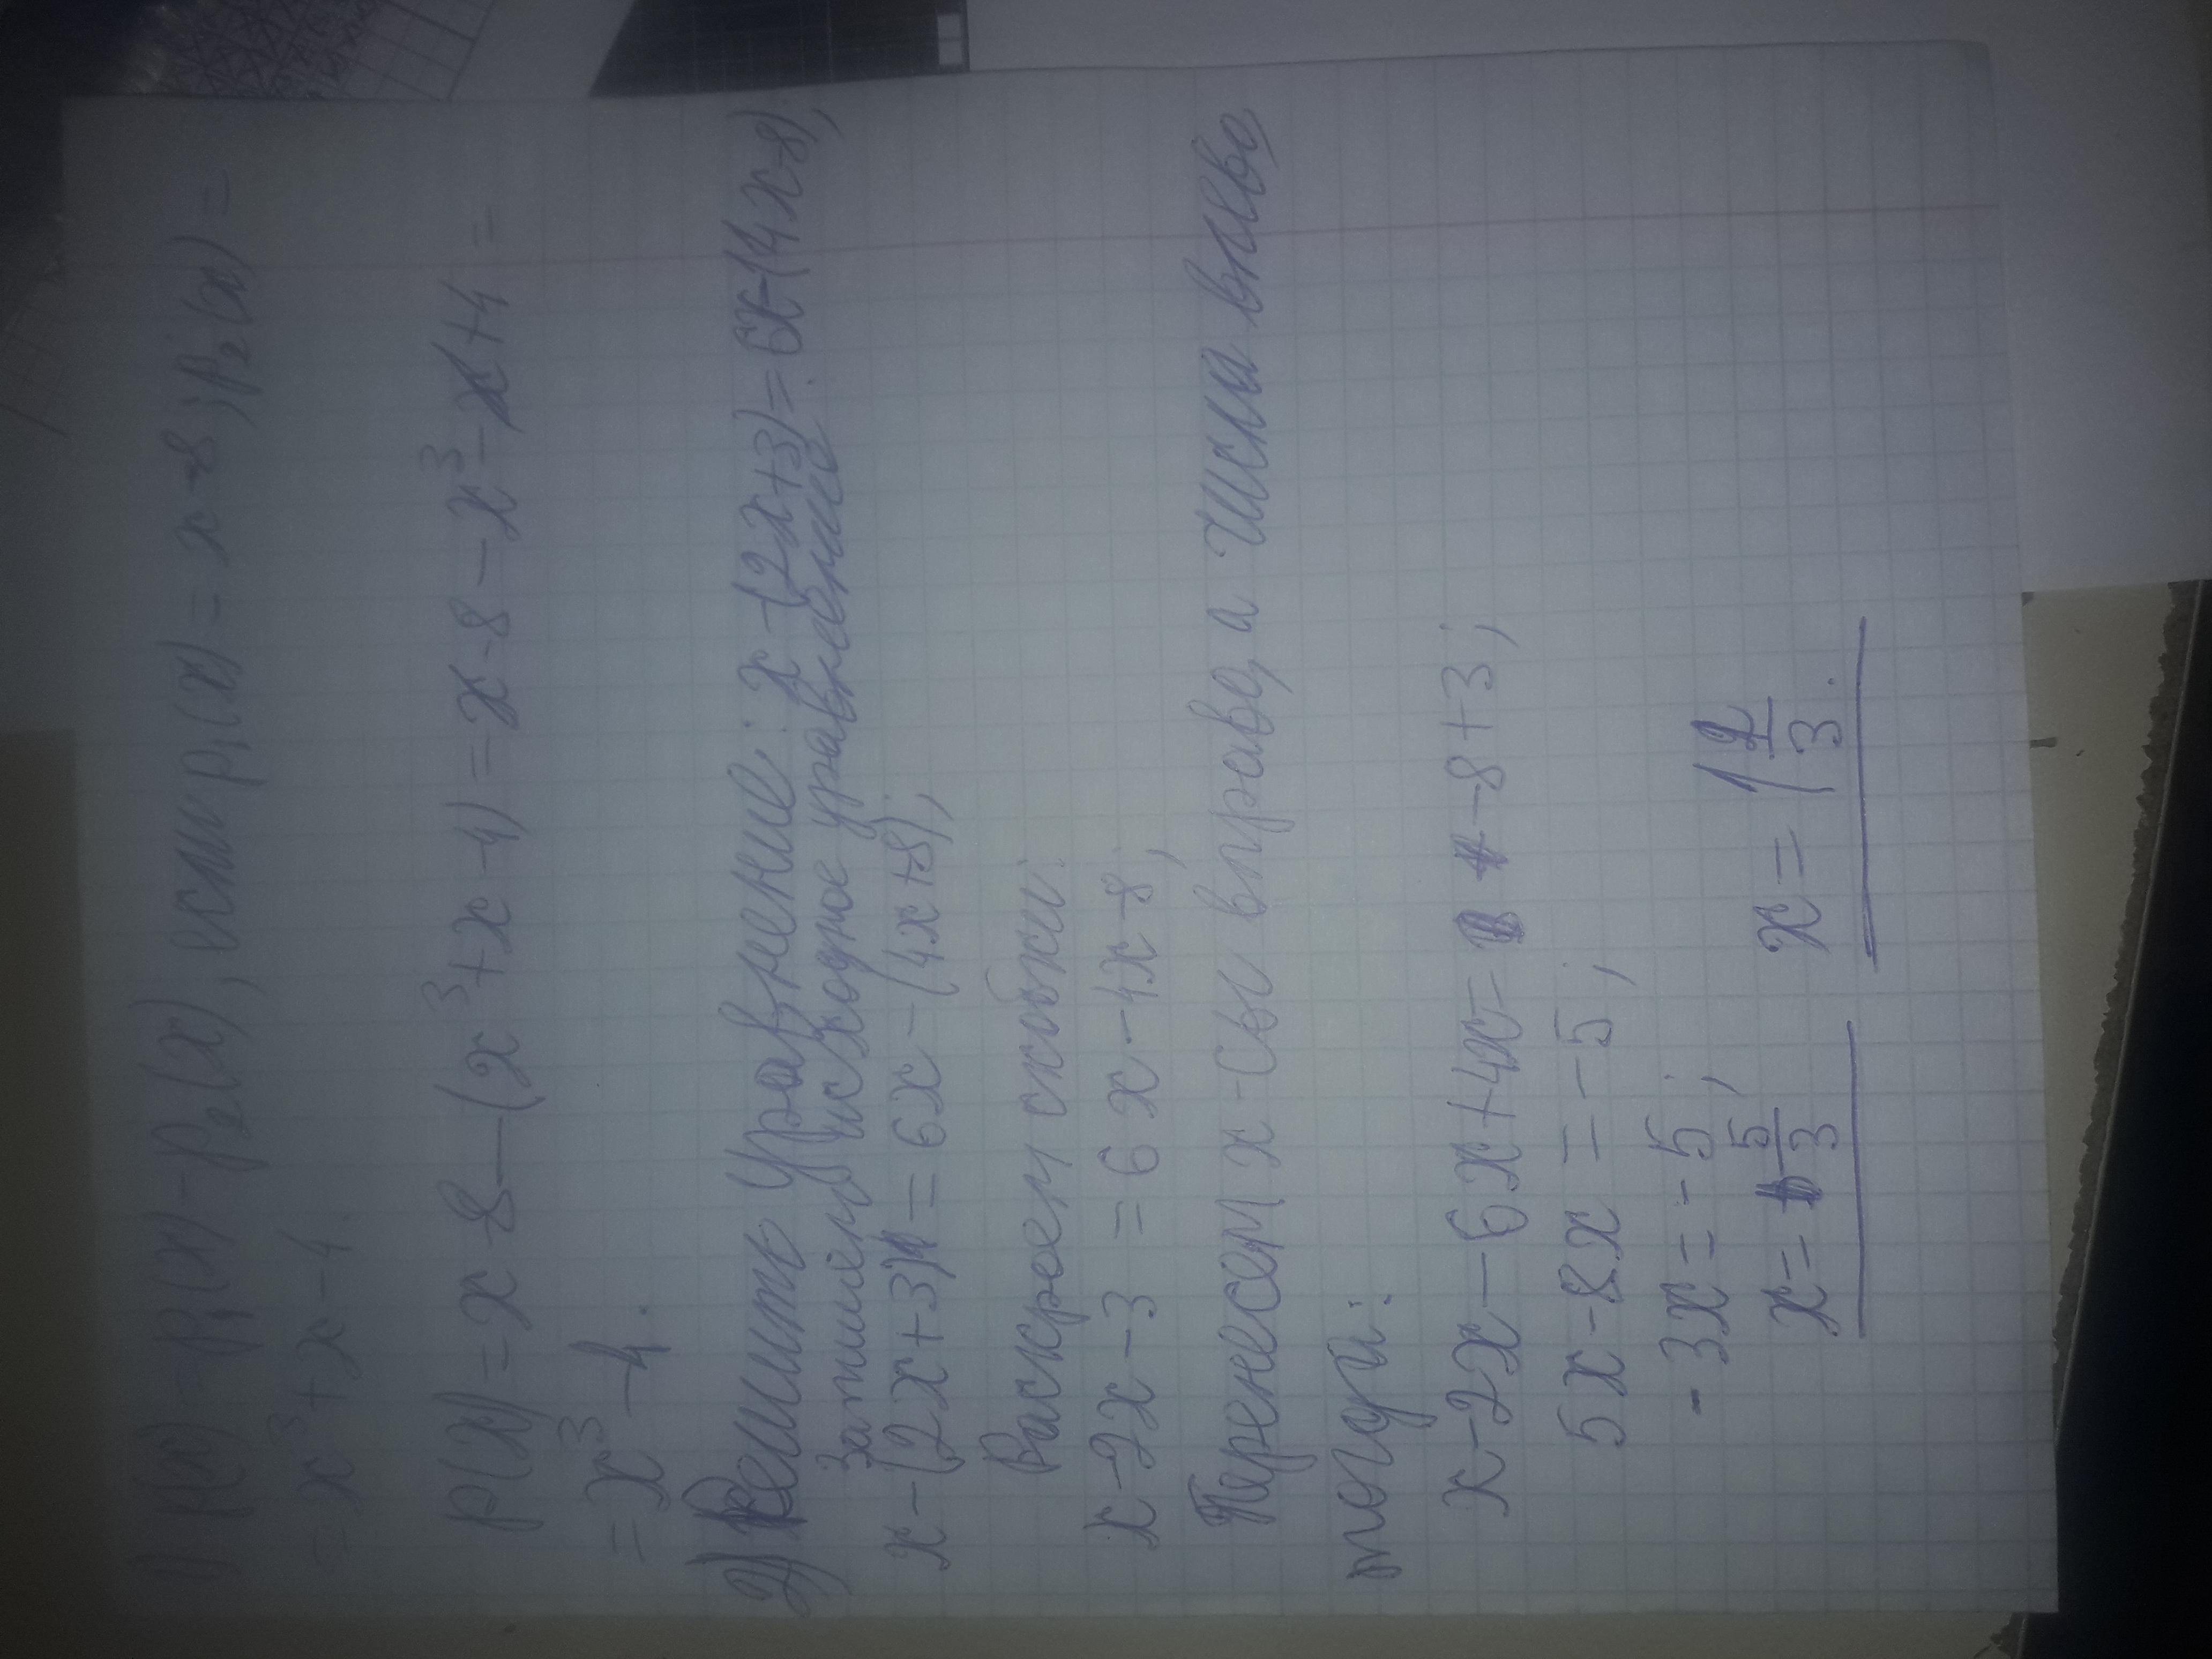 1) P(x) = P₁(x) - P₂(x), если P₁(x) = x - 8; P₂(x) =
= x³ + x - 4
P(x) = x - 8 - (x³ + x - 4) = x - 8 - x³ - x + 4 =
= x³ - 4.
2) Решить уравнение: x - (2x + 3) = 6x - (4x - 8);
Запишем исходное уравнение
x - (2x + 3) = 6x - (4x + 8);
Раскроем скобки:
x - 2x - 3 = 6x - 4x - 8;
Перенесем x-сы вправо, а числа влево
тогда:
x - 2x - 6x + 4x = - 8 + 3;
5x - 8x = - 5;
- 3x = - 5;
x = 5/3 x = 1 2/3.